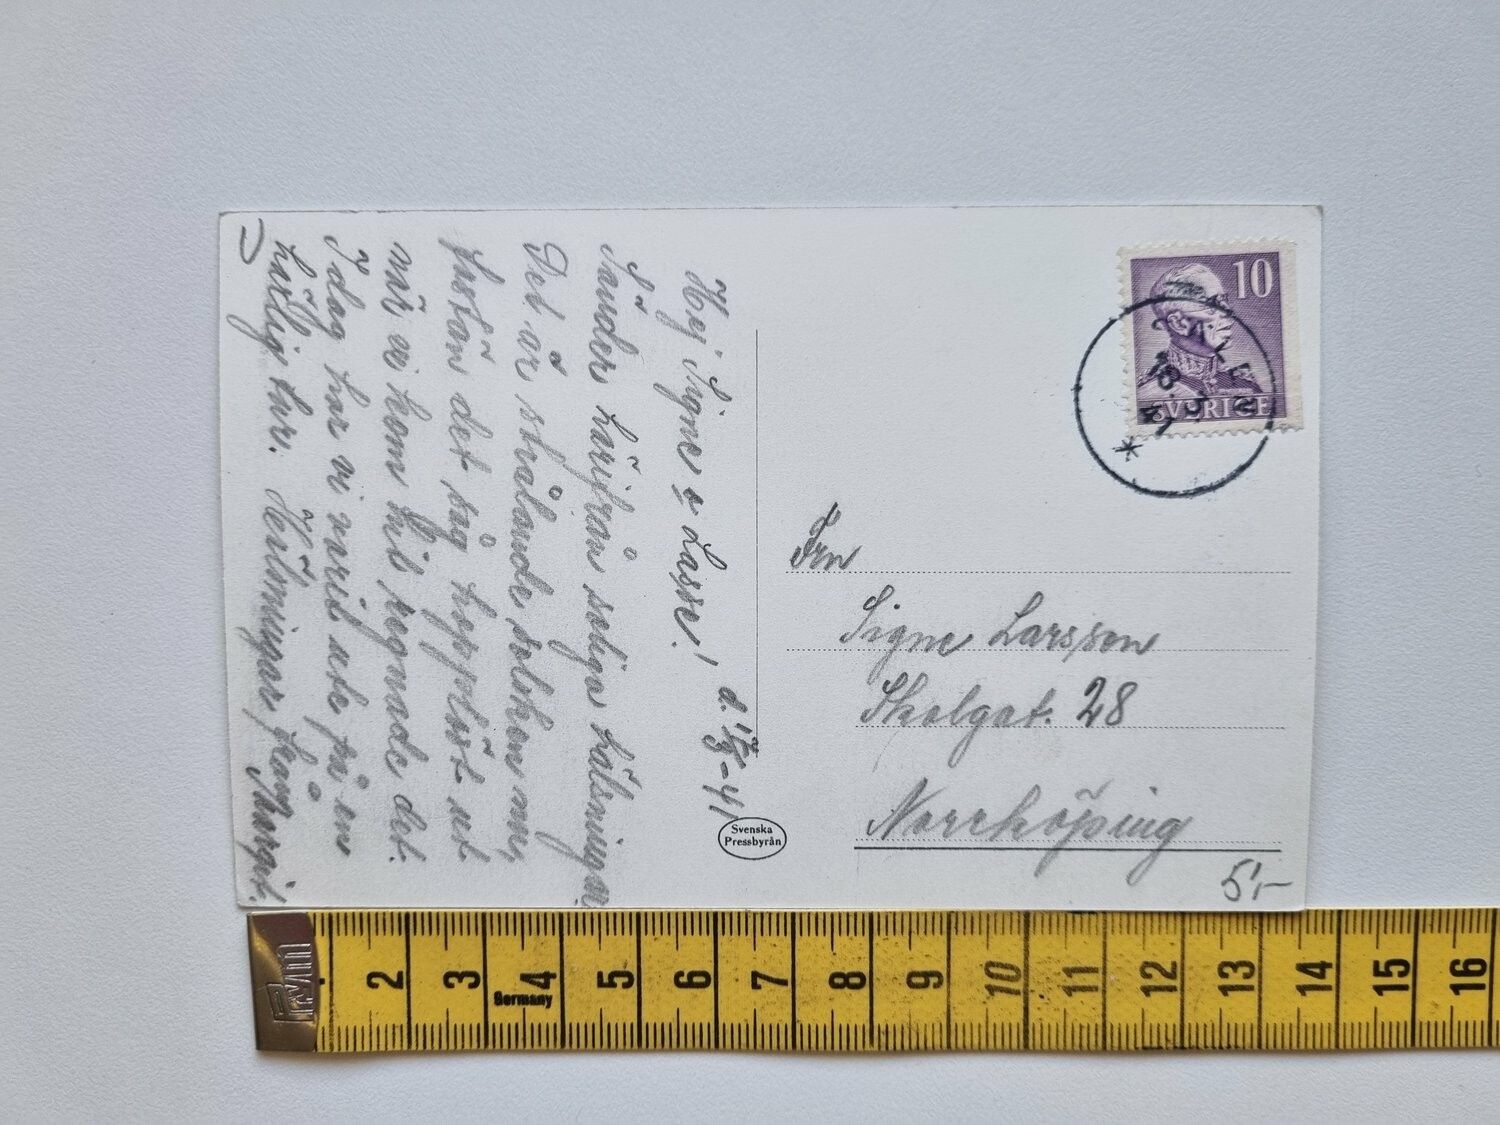 d. 17/3 - 41
Hej Signe o Lasse!
Sänder härifrån soliga hälsningar
Det är strålande solsken nu,
fastän det såg hopplöst ut
när vi kom hit regnade det.
I dag har vi varit ute på en
härlig tur. Hälsningar från Margit.
Svenska
Pressbyrån
10
SVERIGE
18.3
41
Fru
Signe Larsson
Skolgat. 28
Norrköping
5:-
Germany
2 3 4 5 6 7 8 9 10 11 12 13 14 15 16